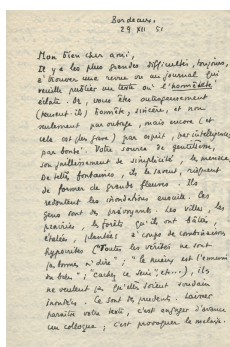 Bordeaux,
29 XII 51
Mon bien cher ami,
Il y a les plus grandes difficultés, toujours,
à trouver une revue ou un journal qui
veuille publier un texte où l'honnêteté
éclate. Or, vous êtes outrageusement
(peut-il) honnête, sincère, et non
seulement par outrage, mais encore (et
cela est plus grave) par esprit, par intelligence,
par bonté. Votre source de gentillesse,
son jaillissement de simplicité, le menace.
De telles fontaines, ils le savent, risquent
de former de grands fleuves. Ils
redoutent les inondations ensuite. Ces
gens sont si prévoyants. Les villes, les
prairies, les forêts qu'ils ont bâties,
étalées, plantées à coups de combinaisons
hypocrites (Toutes les vérités ne sont
pas bonnes à dire"; "le mieux est l'ennemi
du bien"; "cachez ce sein", etc...), ils
ne veulent pas qu'elles soient soudain
inondées. Ce sont des prudents. Laisser
paraître votre texte, c'est engager d'avance
un colloque; c'est provoquer le malaise.